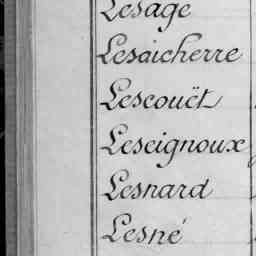 Lesage
Lesaicherre
Lescouët
Leseignoux
Lesnard
Lesné